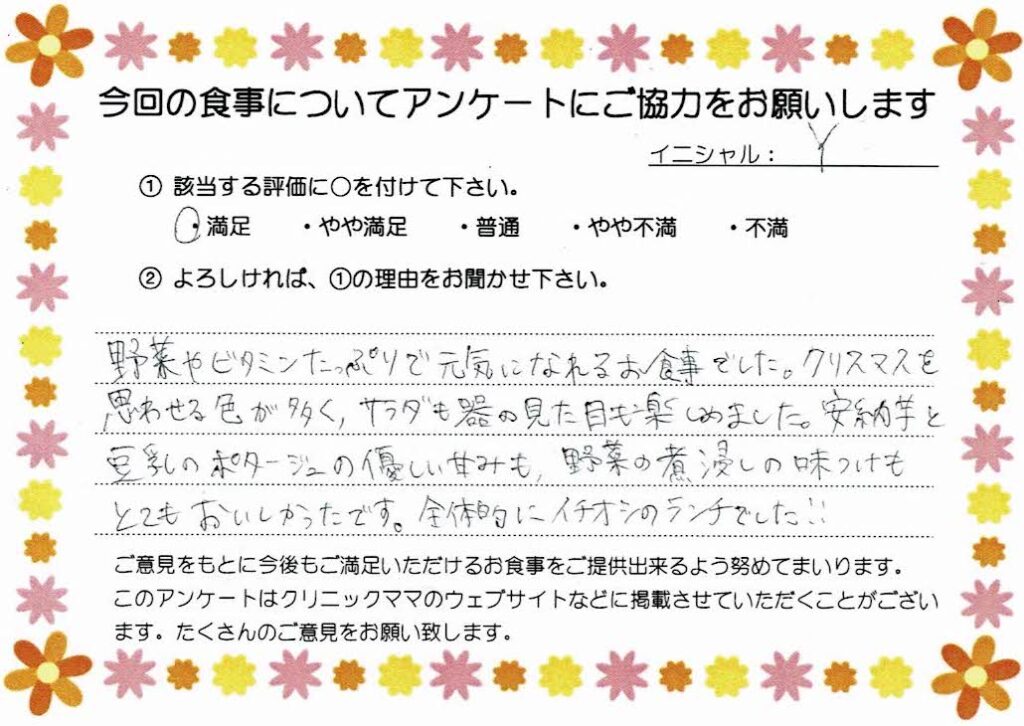 今回の食事についてアンケートにご協力をお願いします
イニシャル： Y
① 該当する評価に○を付けて下さい。
・満足 ・やや満足 ・普通 ・やや不満 ・不満
② よろしければ、①の理由をお聞かせ下さい。
野菜やビタミンたっぷりで元気になれるお食事でした。クリスマスを
思わせる色が多く、サラダも器の見た目も楽しめました。安納芋と
豆乳のポタージュの優しい甘みも、野菜の煮浸しの味つけも
とてもおいしかったです。全体的にイチオシのランチでした!!
ご意見をもとに今後もご満足いただけるお食事をご提供出来るよう努めてまいります。
このアンケートはクリニックママのウェブサイトなどに掲載させていただくことがござい
ます。たくさんのご意見をお願い致します。